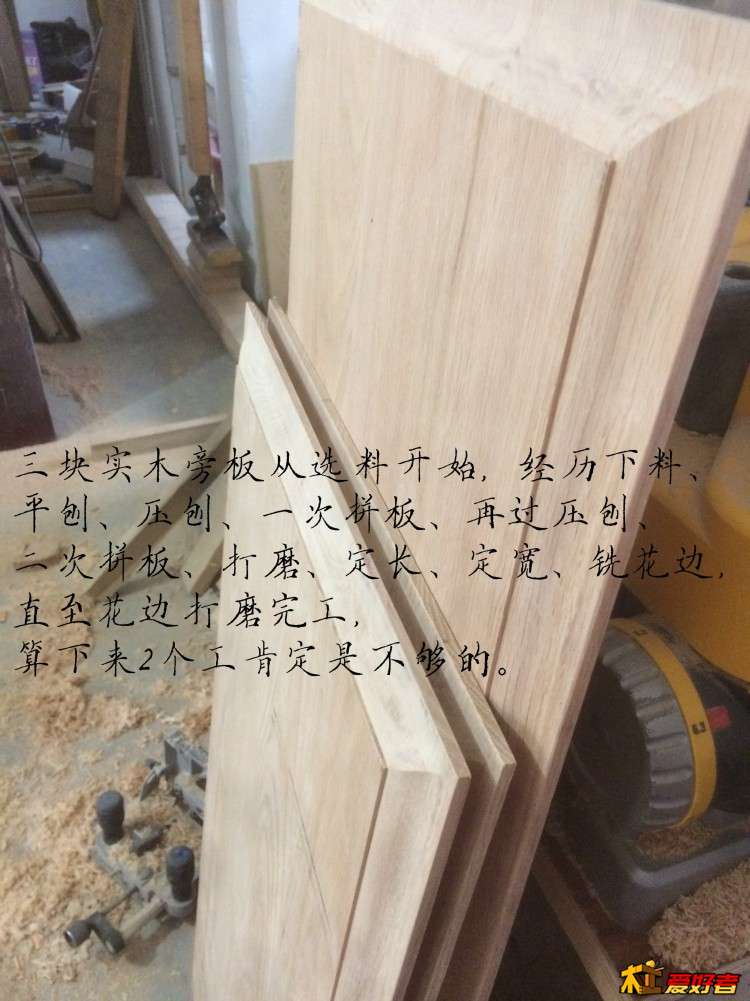 三块实木旁板从选料开始, 经历下料、
平刨、压刨、一次拼板、再过压刨、
二次拼板、打磨、定长、定宽、铣花边,
直至花边打磨完工,
算下来2个工肯定是不够的。
木工爱好者